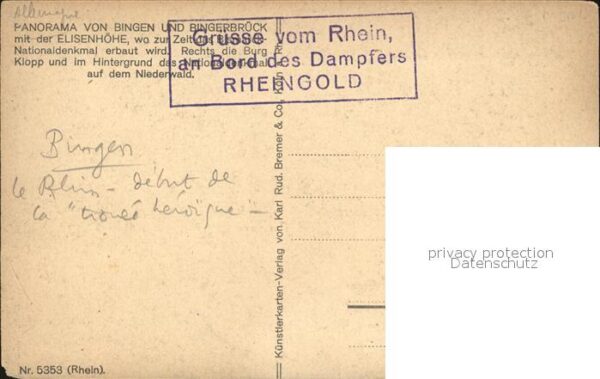 Allemagne
PANORAMA VON BINGEN UND BINGERBRÜCK
mit der ELISENHÖHE, wo zur Zeit das
Nationaldenkmal erbaut wird. Rechts die Burg
Klopp und im Hintergrund das Nationaldenkmal
auf dem Niederwald.
Grüsse vom Rhein,
an Bord des Dampfers
RHEINGOLD
Bingen
le Rhin - début de
la "trouée héroïque" -
Künstlerkarten-Verlag von Karl Rud. Bremer & Co., Köln
privacy protection
Datenschutz
Nr. 5353 (Rhein).